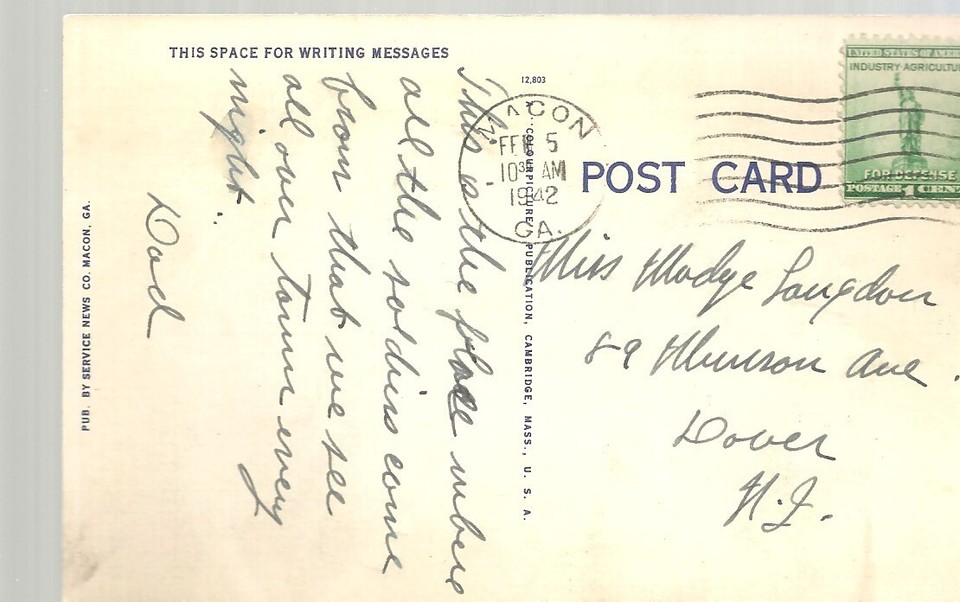 THIS SPACE FOR WRITING MESSAGES
This is the place where
all the soldirs come
from that we see
all over town every
night.
Dad
PUB. BY SERVICE NEWS CO. MACON, GA.
12,803
COLOURPICTURE PUBLICATION, CAMBRIDGE, MASS., U. S. A.
MACON
FEB 5
10 30 AM
1942
GA.
POST CARD
UNITED STATES OF AMERI
INDUSTRY-AGRICULTU
FOR DEFENSE
POSTAGE 1 CENT
Miss Madge Langdon
89 Munson Ave.
Dover
N.J.